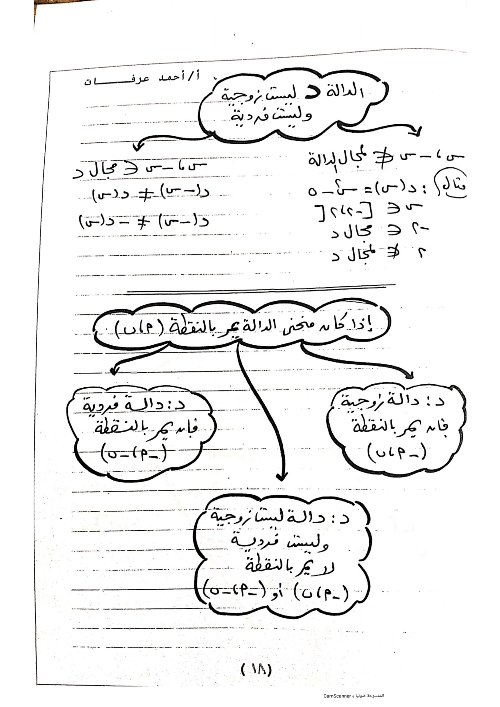 أ/أحمد عرفات
الدالة د ليست زوجية
وليست فردية
س ، -س ∌ لمجال الدالة
مثال: د(س) = س² - ٥
س ∈ [-٢ ، ٢[
-٢ ∈ مجال د
٢ ∉ لمجال د
س ، -س ∈ مجال د
د(-س) ≠ د(س)
د(-س) ≠ -د(س)
إذا كان منحنى الدالة يمر بالنقطة (م ، ن)
د: دالة زوجية
فإنه يمر بالنقطة
(-م ، ن)
د: دالة فردية
فإنه يمر بالنقطة
(-م ، -ن)
د: دالة ليست زوجية
وليست فردية
لا يمر بالنقطة
(-م ، ن) أو (-م ، -ن)
(١٨)
الممسوحة ضوئيا بـ CamScanner